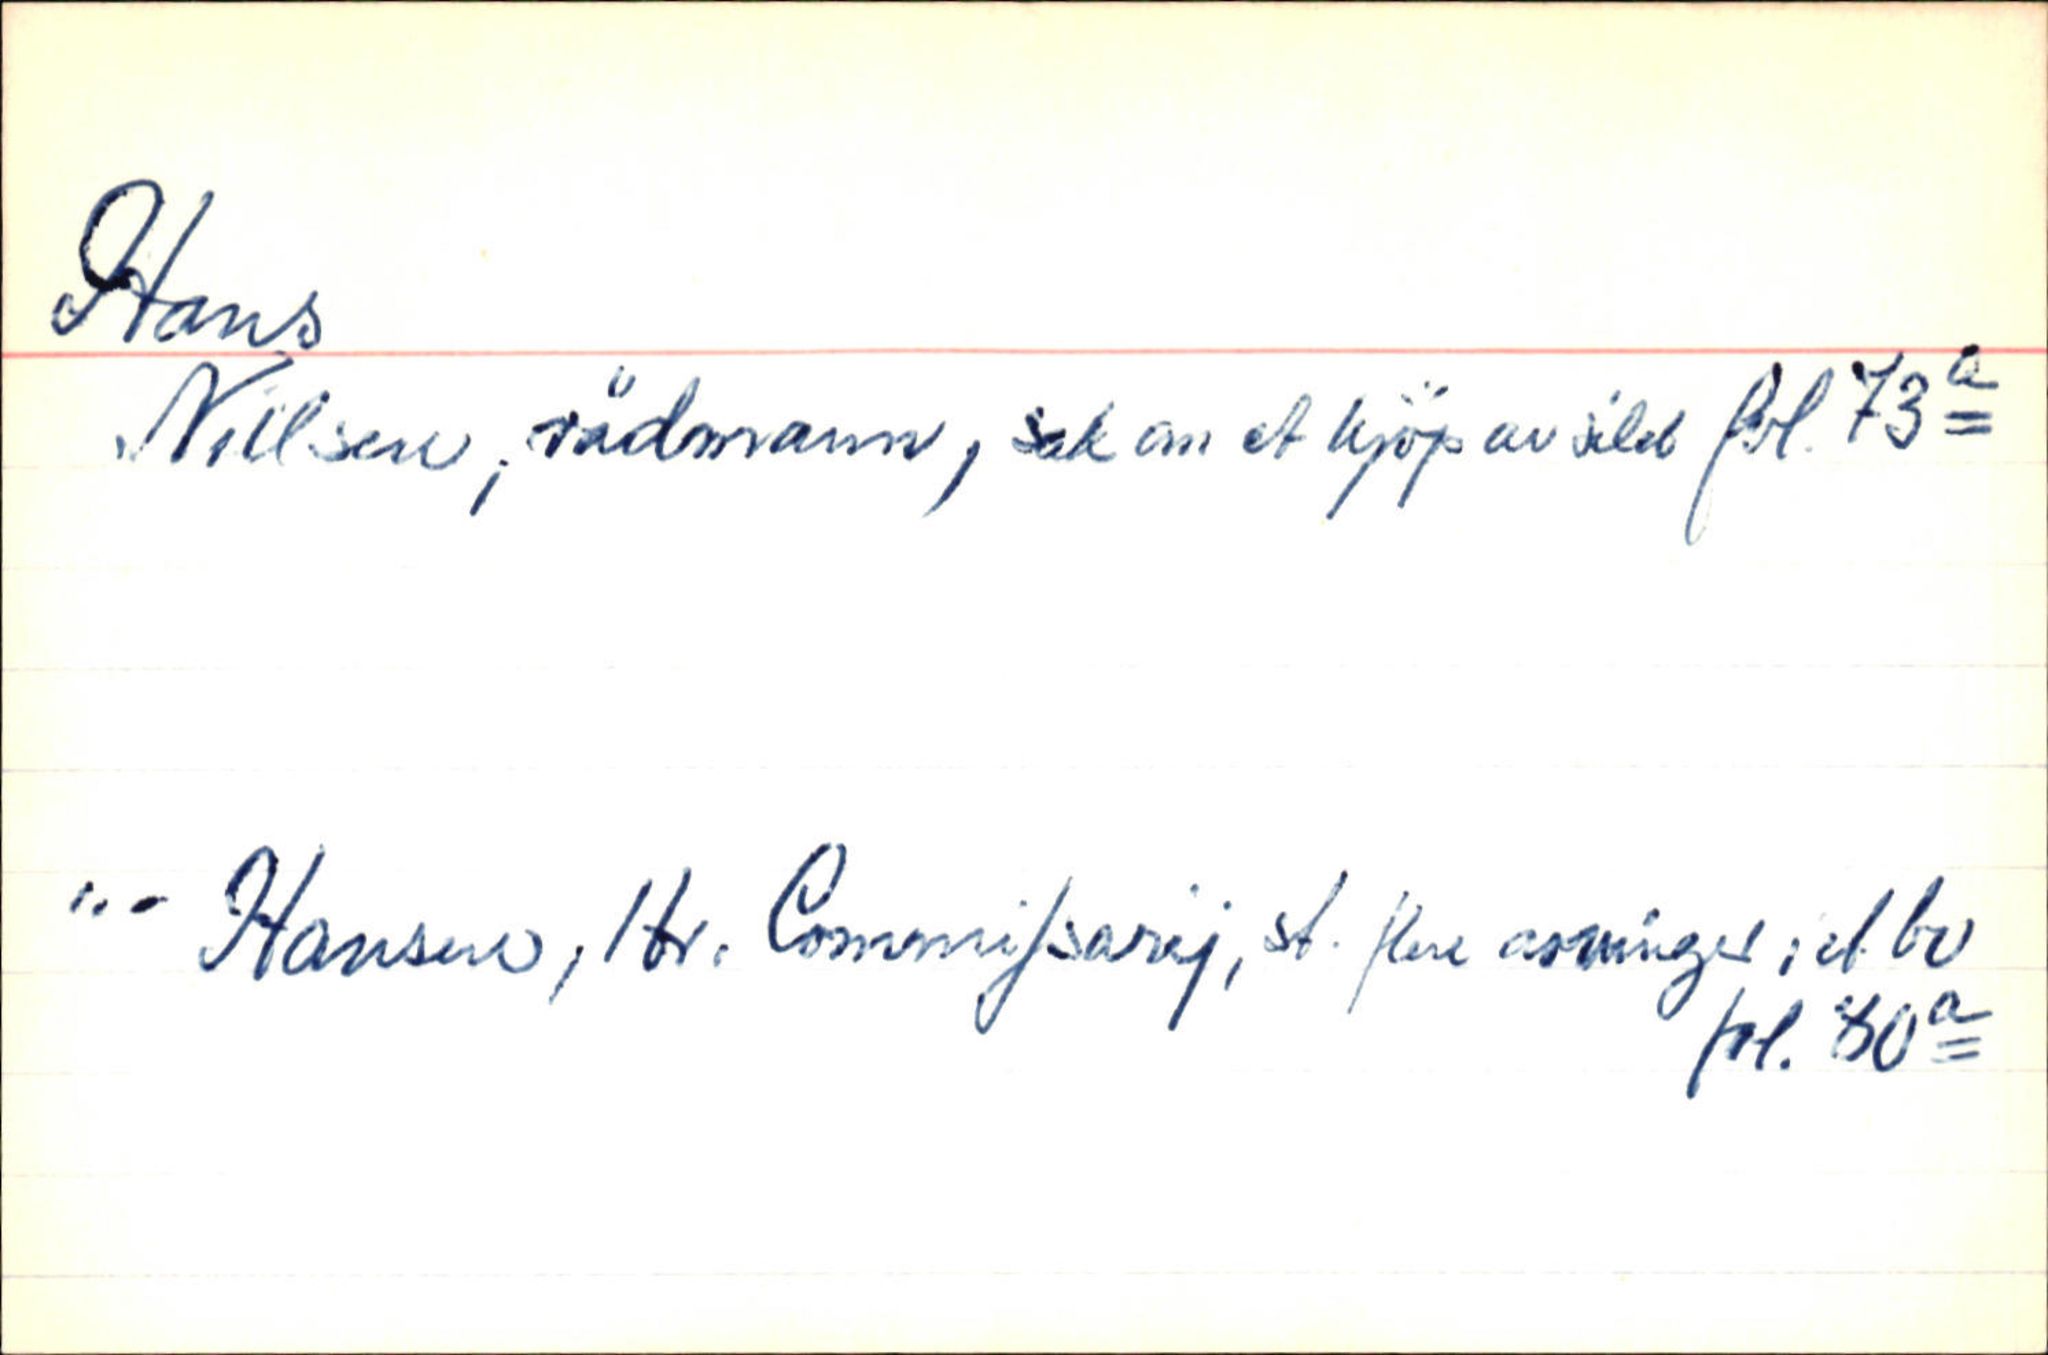 Hans
Nillsen, rådmann, sak om et kjöp av sild fol. 73ª
"- Hansen, Hr. Commissarij, st. flere arvinger i et bo
fol. 80ª